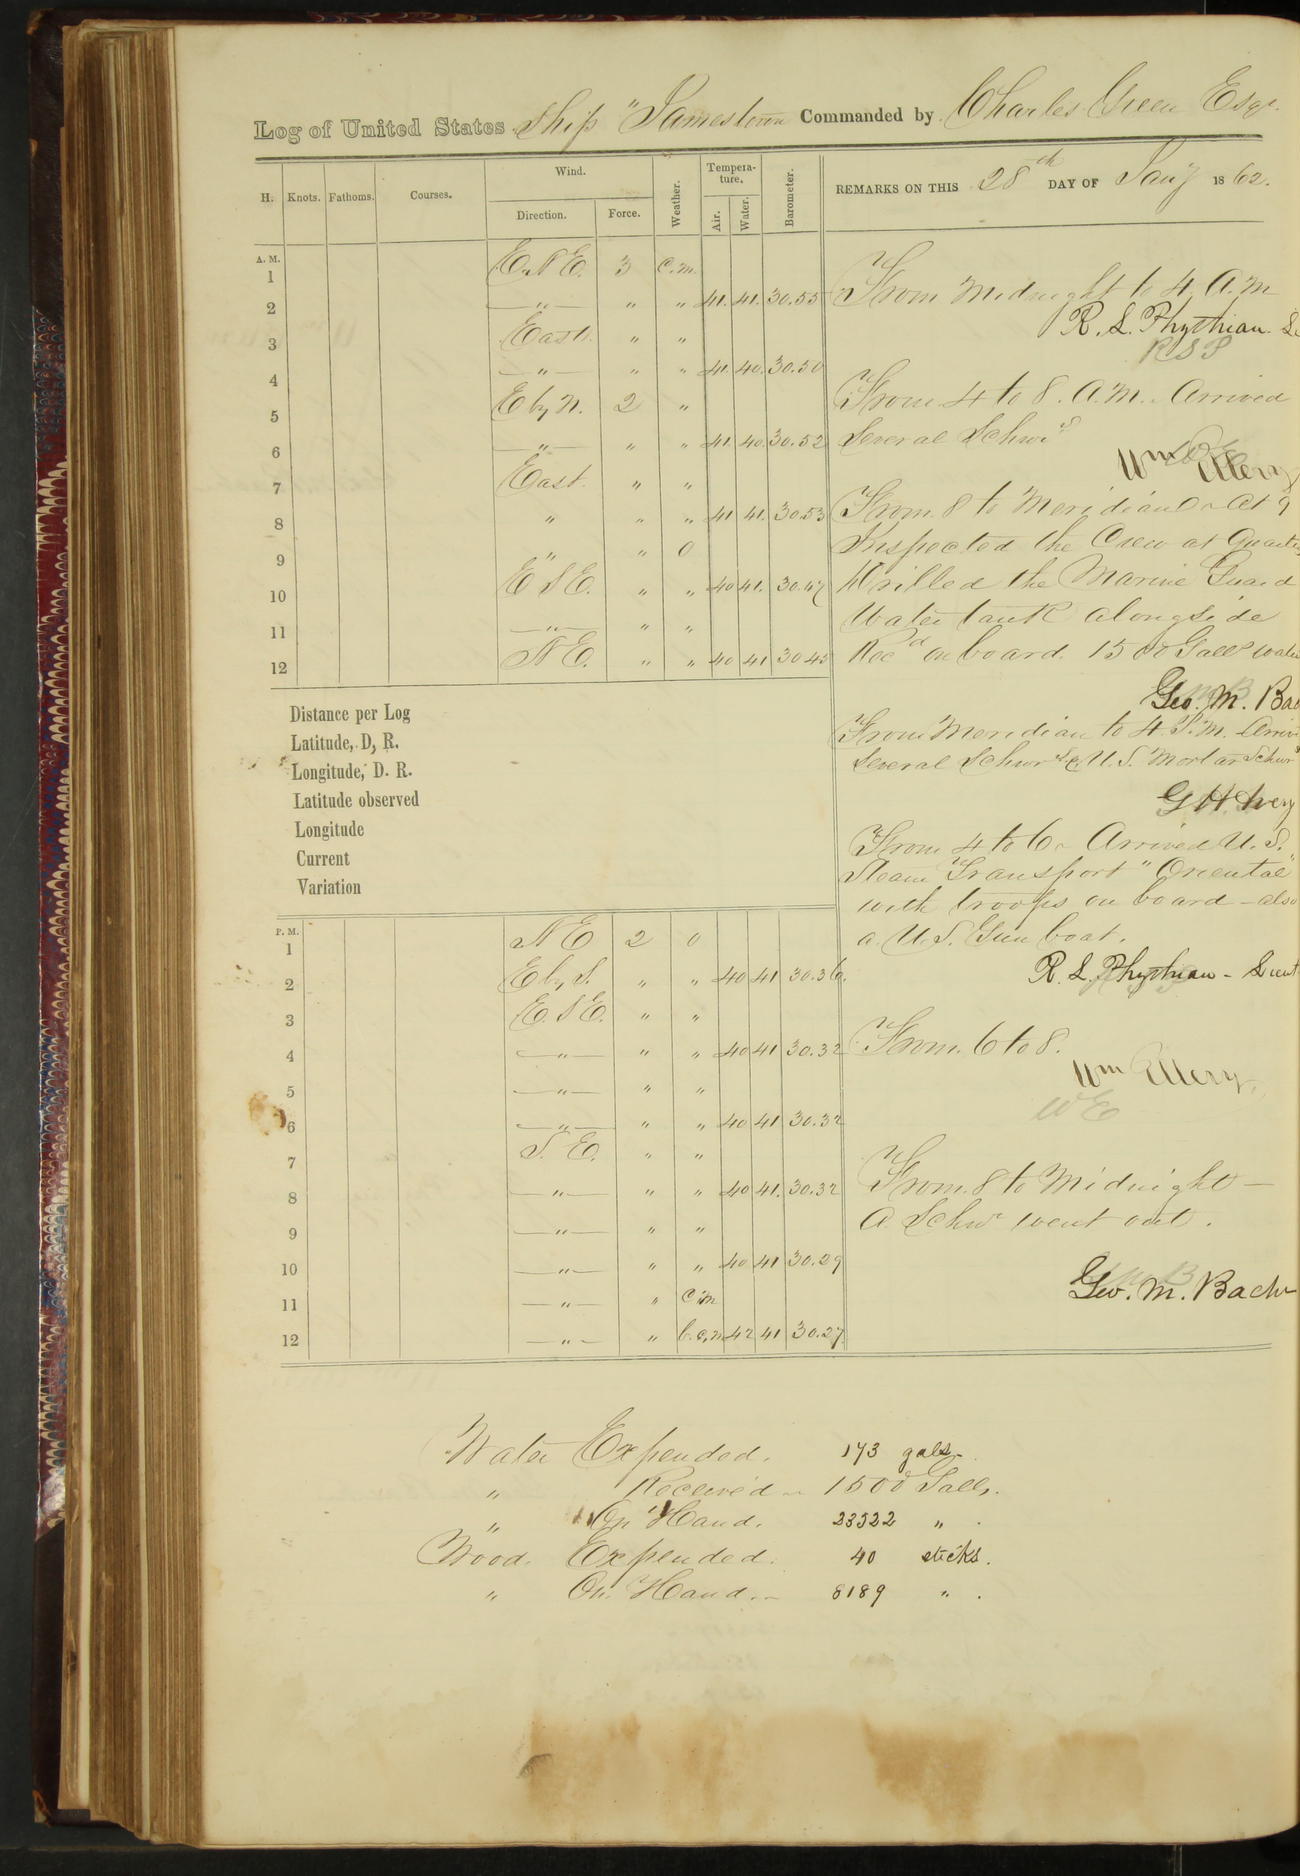 Log of United States Ship "Jamestown Commanded by Charles Green Esqr.
H. Knots. Fathoms. Courses. Wind. Direction. Force. Weather. Tempera-ture. Air. Water. Barometer. REMARKS ON THIS 28th DAY OF Jany 1862.
A. M.
1 E.N.E. 3 c.m.
2 —"— " " 41. 41. 30.55
3 East. " "
4 —"— " " 41. 40. 30.50
5 E by N. 2 "
6 —"— " " 41 40 30.52
7 East. " "
8 " " " 41 41. 30.53
9 " " 0
10 E S E. " " 40 41. 30.47
11 —"— " "
12 N E. " " 40 41 30 45
From Midnight to 4 A.M
R. S. Phythian.
R S P
From 4 to 8. A.M. Arrived
Several Schrs
Wm Ellery
From 8 to Meridian At 9
Inspected the Crew at
Drilled the Marine Guard
Water tank alongside
Recd on board 1500 Galls
Geo. M. Bac
From Meridian to 4 P.M.
Several Schrs & U.S. Mortar Schnr
From 4 to 6 Arrived U.S.
Steam Transport "Oriental"
with troops on board – also
a U.S. Gun boat.
R. S. Phythian - Lieut
From. 6 to 8.
Wm Ellery.
W E
From. 8 to Midnight –
A Schr went out.
Geo. M. Bach
Distance per Log
Latitude, D, R.
Longitude, D. R.
Latitude observed
Longitude
Current
Variation
P. M.
1 N E 2 0
2 E by S. " " 40 41 30.36.
3 E. S E. " "
4 —"— " " 40 41 30.32
5 —"— " "
6 —"— " " 40 41 30.32
7 S. E. " "
8 —"— " " 40 41. 30.32
9 —"— " "
10 —"— " " 40 41 30.29
11 —"— " c m
12 —"— " b.c.m 42 41 30.27
Water Expended. 173 gals.
" Received 1500 Galls.
" On Hand. 23522 " .
Wood. Expended. 40 sticks.
" On Hand. 8189 " .